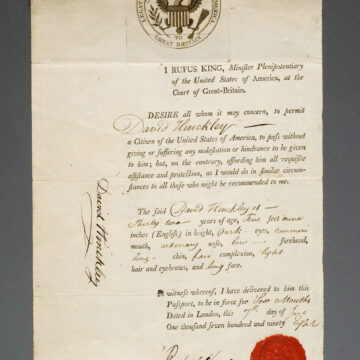 LEGATION AMERICA
TO
GREAT BRITAIN
I RUFUS KING, Minister Plenipotentiary
of the United States of America, at the
Court of Great-Britain.
DESIRE all whom it may concern, to permit
David Hinckley
a Citizen of the United States of America, to pass without
giving or suffering any molestation or hindrance to be given
to him; but, on the contrary, affording him all requisite
assistance and protection, as I would do in similar circum-
stances to all those who might be recommended to me.
The said David Hinckley is
thirty two years of age, five feet nine
inches (English) in height, dark eyes, common
mouth, ordinary nose, low forehead,
long chin, fair complexion, light
hair and eyebrows, and long face.
In witness whereof, I have delivered to him this
Passport, to be in force for Months
Dated in London, this day of
One thousand seven hundred and ninety Eight
David Hinckley